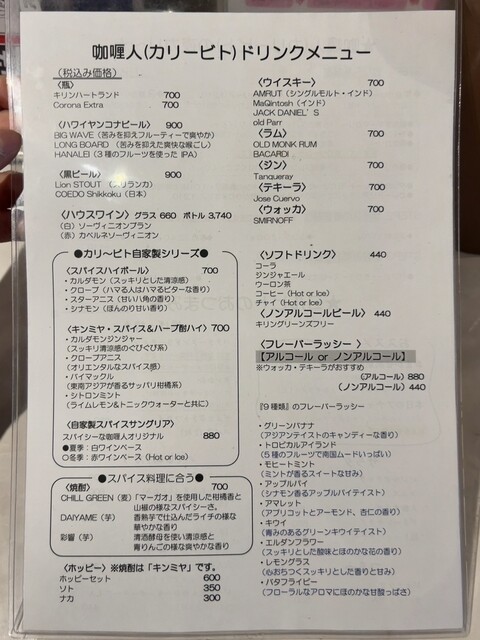 咖喱人(カリービト)ドリンクメニュー
(税込み価格)
〈瓶〉
キリンハートランド 700
Corona Extra 700
〈ハワイヤンコナビール〉 900
BIG WAVE (苦みを抑えフルーティーで爽やか)
LONG BOARD (苦みを抑えた爽快な喉ごし)
HANALEI (3種のフルーツを使った IPA)
〈黒ビール〉 900
Lion STOUT (スリランカ)
COEDO Shikkoku (日本)
〈ハウスワイン〉 グラス 660 ボトル 3,740
(白) ソーヴィニアンブラン
(赤) カベルネソーヴィニオン
●カリ〜ビト自家製シリーズ●
〈スパイスハイボール〉 700
・カルダモン (スッキリとした清涼感)
・クローブ (ハマる人はハマるビターな香り)
・スターアニス (甘い八角の香り)
・シナモン (ほんのり甘い香り)
〈キンミヤ・スパイス&ハーブ酎ハイ〉 700
・カルダモンジンジャー
(スッキリ清涼感のぐびぐび系)
・クローブアニス
(オリエンタルなスパイス感)
・バイマックル
(東南アジアが香るサッパリ柑橘系)
・シトロンミント
(ライムレモン&トニックウォーターと共に)
〈自家製スパイスサングリア〉
スパイシーな咖喱人オリジナル 880
●夏季：白ワインベース
●冬季：赤ワインベース (Hot or Ice)
●スパイス料理に合う●
〈焼酎〉 700
CHILL GREEN (麦) 「マーガオ」を使用した柑橘香と
山椒の様なスパイシーさ。
DAIYAME (芋) 香熟芋で仕込んだライチの様な
華やかな香り
彩響 (芋) 清酒酵母を使い清涼感と
青りんごの様な爽やかな香り
〈ホッピー〉 ※焼酎は「キンミヤ」です。
ホッピーセット 600
ソト 350
ナカ 300
〈ウイスキー〉 700
AMRUT (シングルモルト・インド)
MaQintosh (インド)
JACK DANIEL'S
old Parr
〈ラム〉 700
OLD MONK RUM
BACARDI
〈ジン〉 700
Tanqueray
〈テキーラ〉 700
Jose Cuervo
〈ウォッカ〉 700
SMIRNOFF
〈ソフトドリンク〉 440
コーラ
ジンジャエール
ウーロン茶
コーヒー (Hot or Ice)
チャイ (Hot or Ice)
〈ノンアルコールビール〉 440
キリングリーンズフリー
〈フレーバーラッシー 〉
【アルコール or ノンアルコール】
※ウォッカ・テキーラがおすすめ
(アルコール) 880
(ノンアルコール) 440
『9 種類』のフレーバーラッシー
・グリーンバナナ
(アジアンテイストのキャンディーな香り)
・トロピカルアイランド
(5種のフルーツで南国ムードいっぱい)
・モヒートミント
(ミントが香るスイートな甘み)
・アップルパイ
(シナモン香るアップルパイテイスト)
・アマレット
(アプリコットとアーモンド、杏仁の香り)
・キウイ
(青みのあるグリーンキウイテイスト)
・エルダンフラワー
(スッキリとした酸味とほのかな花の香り)
・レモングラス
(心おちつくスッキリとした香りと甘み)
・バタフライピー
(フローラルなアロマにほのかな甘酸っぱさ)